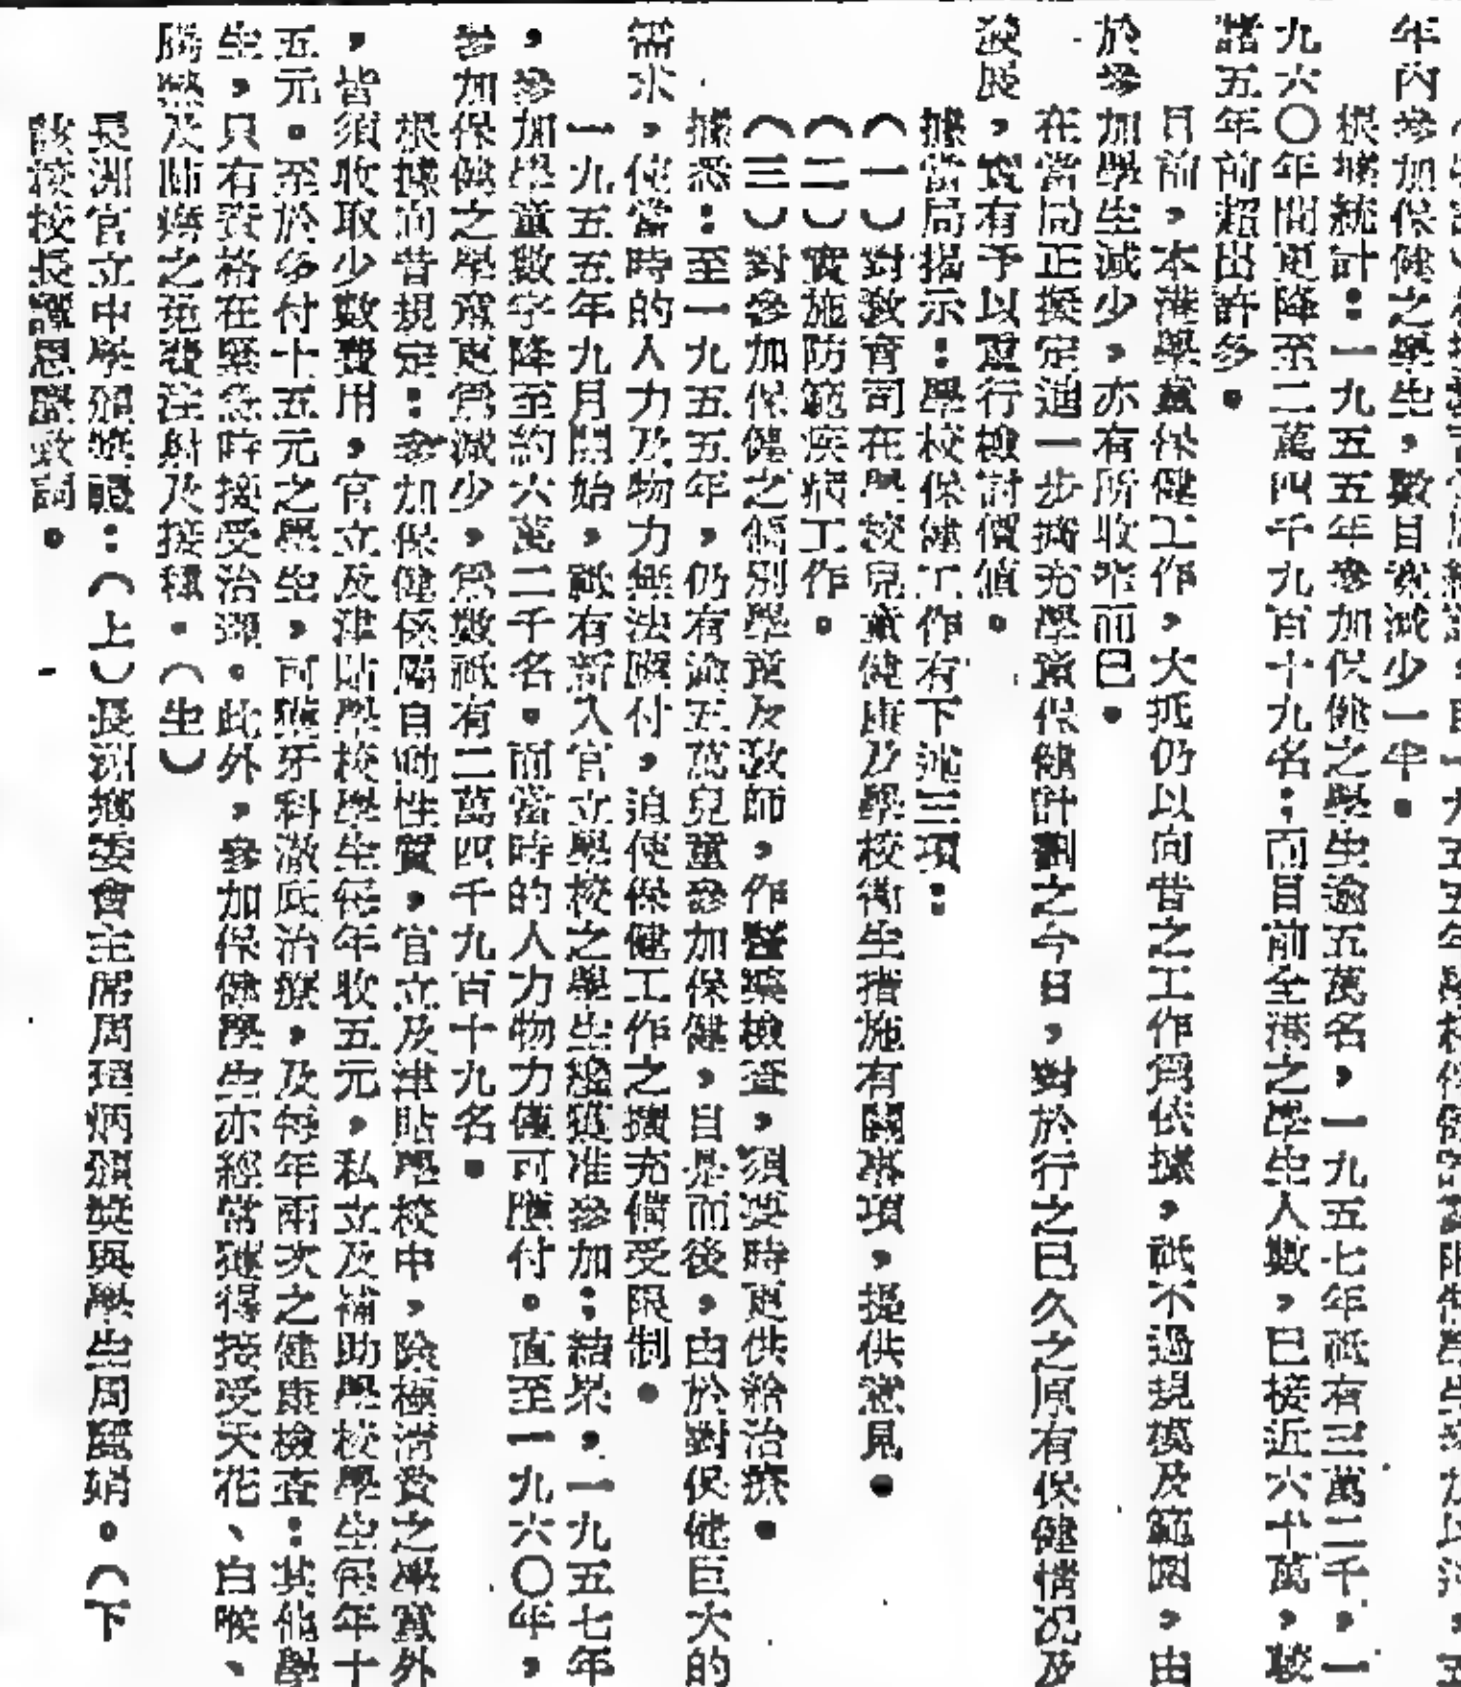 年內參加保健之學生,數目激減少一半。
根據統計:一九五五年參加保健之學生逾五萬名,一九五七年祇有三萬二千,一
九六〇年間更降至二萬四千九百十九名;而目前全港之學生人數,已接近六十萬,較
諸五年前超出許多。
目前,本港學童保健工作,大抵仍以向昔之工作爲依據,祇不過規模及範圍,由
於參加學生減少,亦有所收窄而已。
在當局正擬定進一步擴充學童保健計劃之今日,對於行之已久之原有保健情况及
發展,實有予以重行檢討價值。
據當局揭示:學校保健工作有下述三項:
(一)對敎育司在學校兒童健康及學校衛生措施有關事項,提供意見。
(二)實施防範疾病工作。
(三)對參加保健之個別學童及敎師,作醫藥檢查,須要時更供給治療。
據悉:至一九五五年,仍有逾五萬兒童參加保健,自是而後,由於對保健巨大的
需求,使當時的人力及物力無法應付,迫使保健工作之擴充備受限制。
一九五五年九月開始,祇有新入官立學校之學生纔獲准參加;結果,一九五七年
,參加學童數字降至約六萬二千名。而當時的人力物力僅可應付。直至一九六〇年,
參加保健之學童更爲減少,爲數祇有二萬四千九百十九名。
根據向昔規定:參加保健係屬自動性質,官立及津貼學校中,除極清貧之學童外
,皆須收取少數費用,官立及津貼學校學生每年收五元,私立及補助學校學生每年十
五元。至於多付十五元之學生,可獲牙科澈底治療,及每年兩次之健康檢查;其他學
生,只有資格在緊急時接受治理。此外,參加保健學生亦經常獲得接受天花、白喉、
腸熱及肺癆之免費注射及接種。(生)
長洲官立中學頒獎禮:(上)長洲鄉委會主席周理炳頒獎與學生周麗娟。(下
該校校長譚恩 致詞。